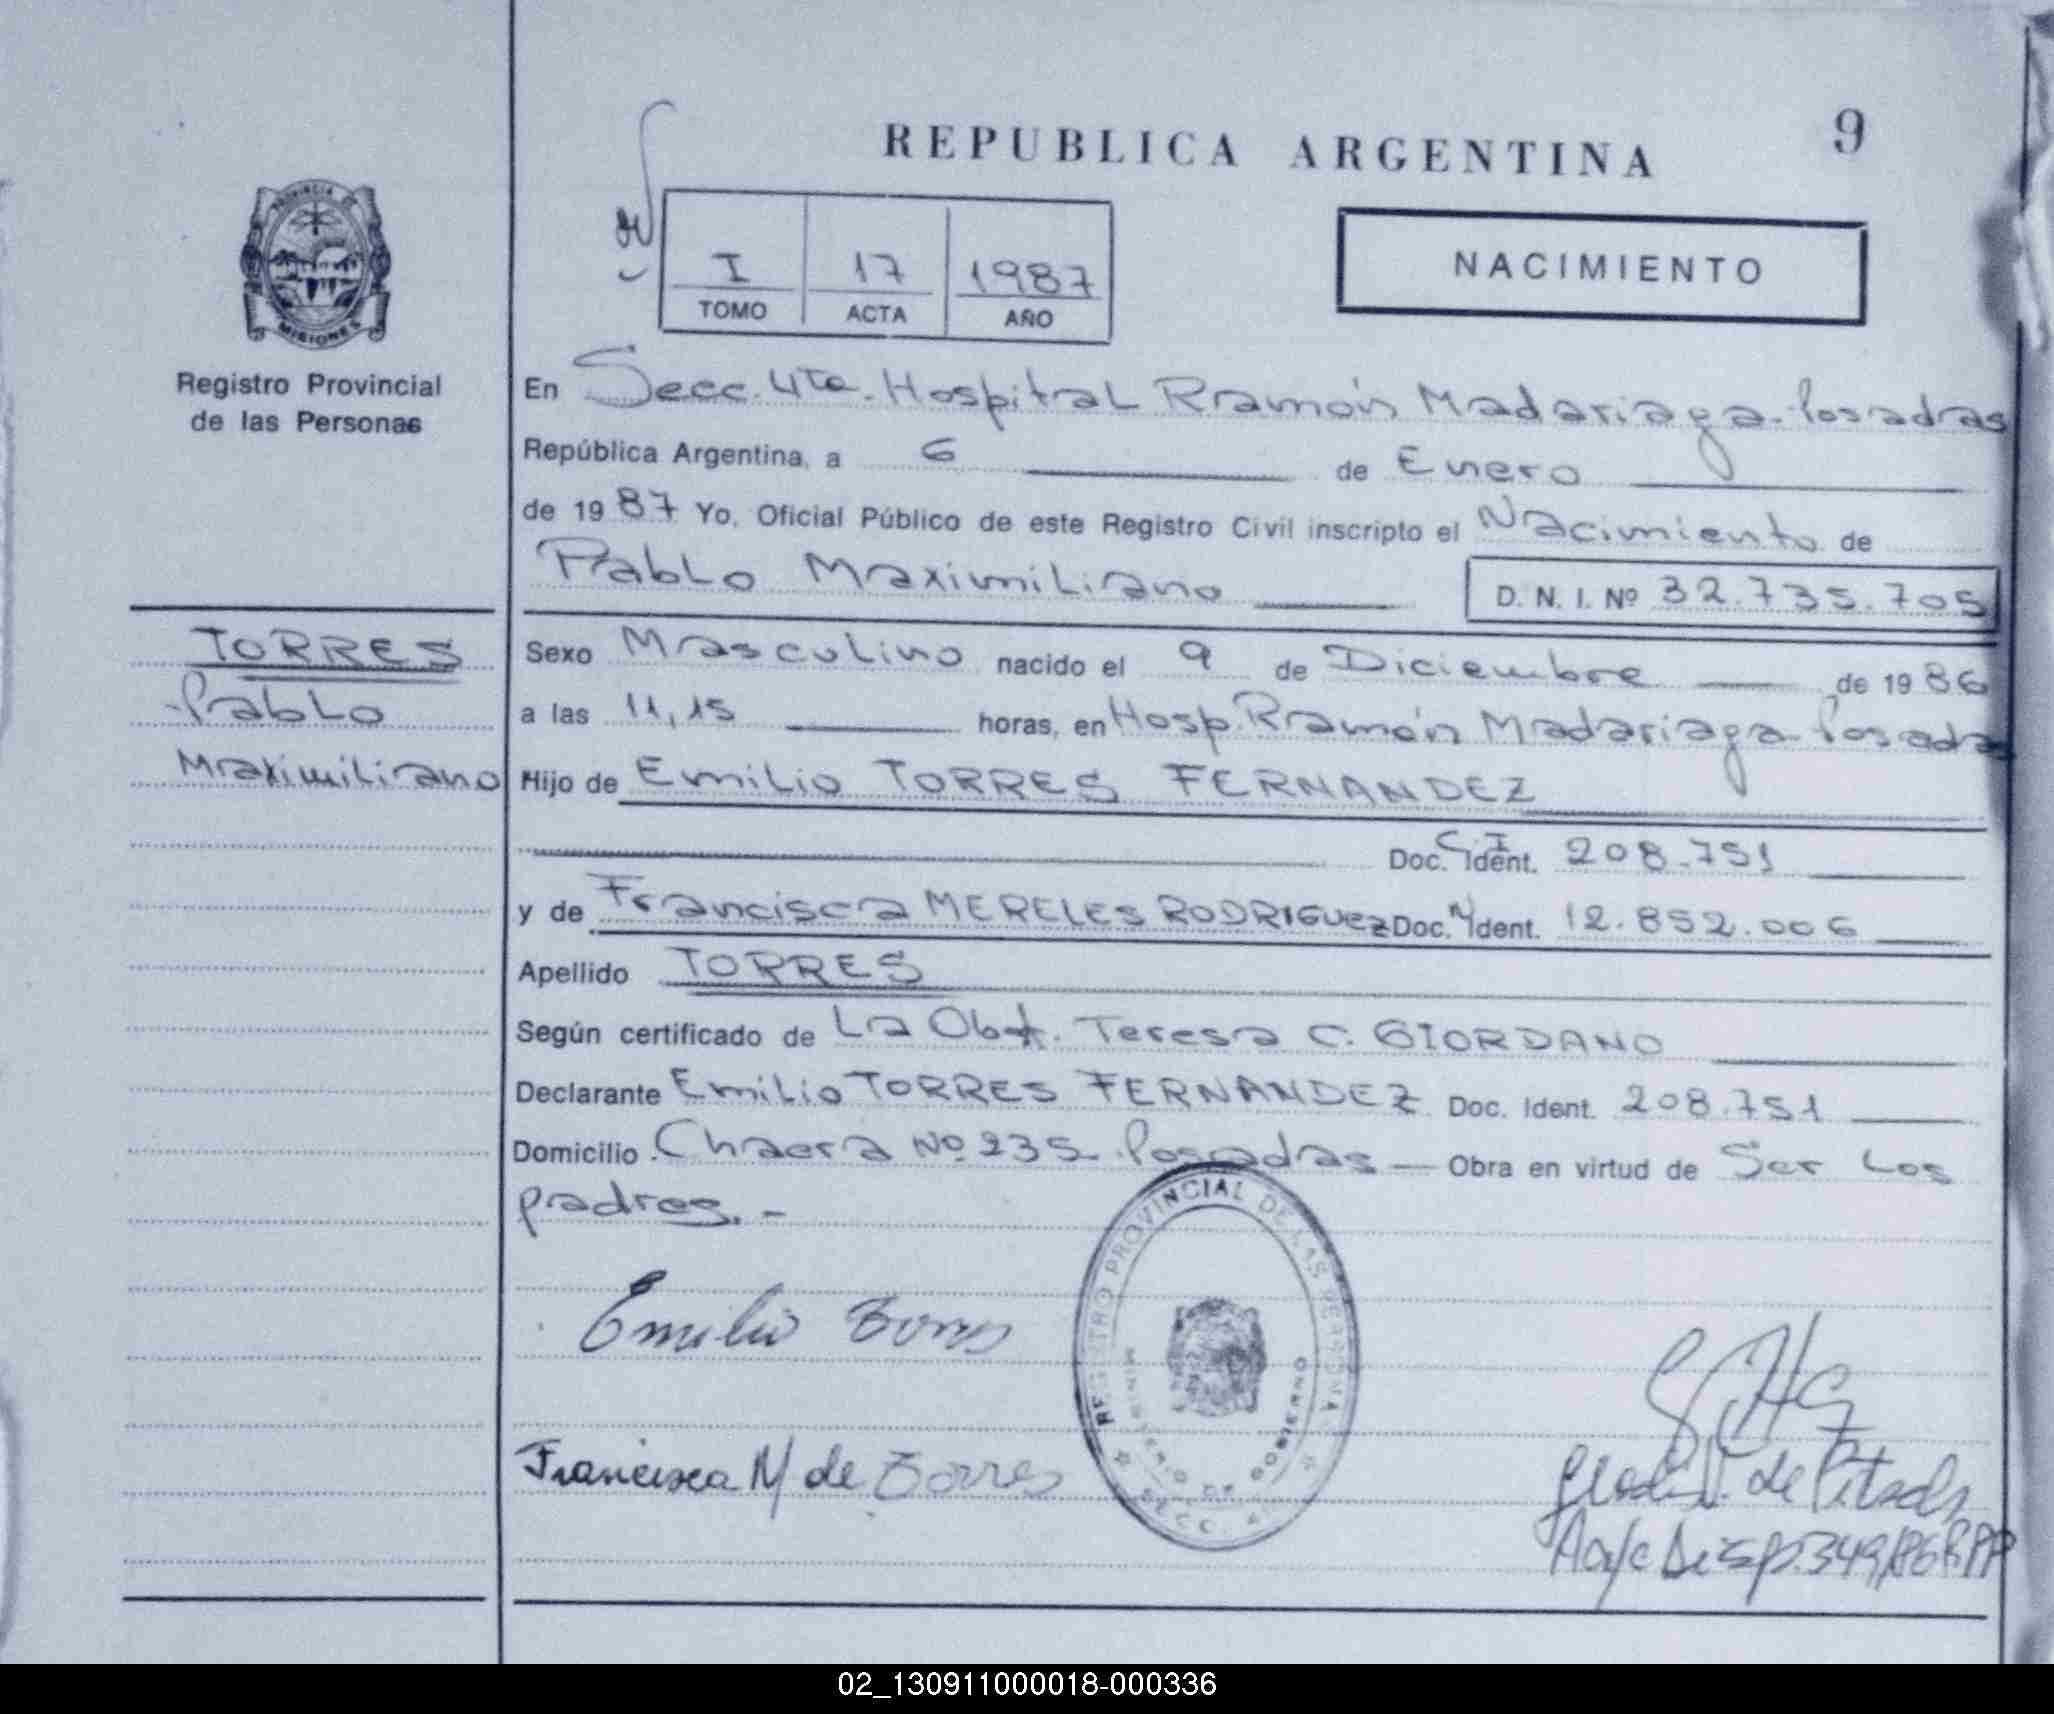 REPUBLICA ARGENTINA
9
PROVINCIA DE
MISIONES
Registro Provincial
de las Personas
I 17 1987
TOMO ACTA AÑO
NACIMIENTO
En Secc. 4ta. Hospital Ramón Madariaga - Posadas
República Argentina, a 6 de Enero
de 1987 Yo, Oficial Público de este Registro Civil inscripto el Nacimiento de
Pablo Maximiliano D. N. I. Nº 32.735.705
TORRES
Pablo
Maximiliano
Sexo Masculino nacido el 9 de Diciembre de 1986
a las 11,15 horas, en Hosp. Ramón Madariaga Posadas
Hijo de Emilio TORRES FERNANDEZ
Doc. Ident. C.I 208.751
y de Francisca MERELES RODRIGUEZ Doc. Ident. 12.852.006
Apellido TORRES
Según certificado de La Obst. Teresa C. GIORDANO
Declarante Emilio TORRES FERNANDEZ Doc. Ident. 208.751
Domicilio Chacra Nº 235 - Posadas - Obra en virtud de Ser Los
padres. -
Emilio Torres
REGISTRO PROVINCIAL DE LAS PERSONAS
MINISTERIO DE GOBIERNO
SECC. 4
Francisca M de Torres
A a/c Disp. 349/86 RPP
02_130911000018-000336